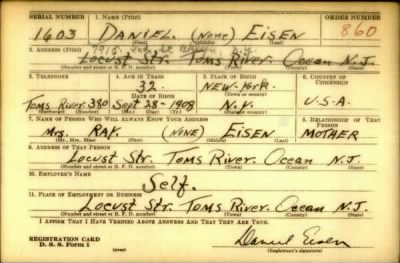 SERIAL NUMBER 1. NAME (Print) ORDER NUMBER
1603 DANIEL. (NONE) EISEN 860
(First) (Middle) (Last)
2. ADDRESS (Print)
Locust Str. Toms River. Ocean N.J.
(Number and street or R. F. D. number) (Town) (County) (State)
3. TELEPHONE 4. AGE IN YEARS 5. PLACE OF BIRTH 6. COUNTRY OF CITIZENSHIP
32. NEW-YORK.
DATE OF BIRTH (Town or county)
Toms River. 380 Sept 28-1908 N.Y. U.S.A.
(Exchange) (Number) (Mo.) (Day) (Yr.) (State or country)
7. NAME OF PERSON WHO WILL ALWAYS KNOW YOUR ADDRESS 8. RELATIONSHIP OF THAT PERSON
Mrs. RAY. (NONE) EISEN MOTHER
(Mr., Mrs., Miss) (First) (Middle) (Last)
9. ADDRESS OF THAT PERSON
Locust Str. Toms River. Ocean N.J.
(Number and street or R. F. D. number) (Town) (County) (State)
10. EMPLOYER'S NAME
Self.
11. PLACE OF EMPLOYMENT OR BUSINESS
Locust Str. Toms River. Ocean N.J.
(Number and street or R. F. D. number) (Town) (County) (State)
I AFFIRM THAT I HAVE VERIFIED ABOVE ANSWERS AND THAT THEY ARE TRUE.
REGISTRATION CARD
D. S. S. Form 1 (over) Daniel Eisen
(Registrant's signature)